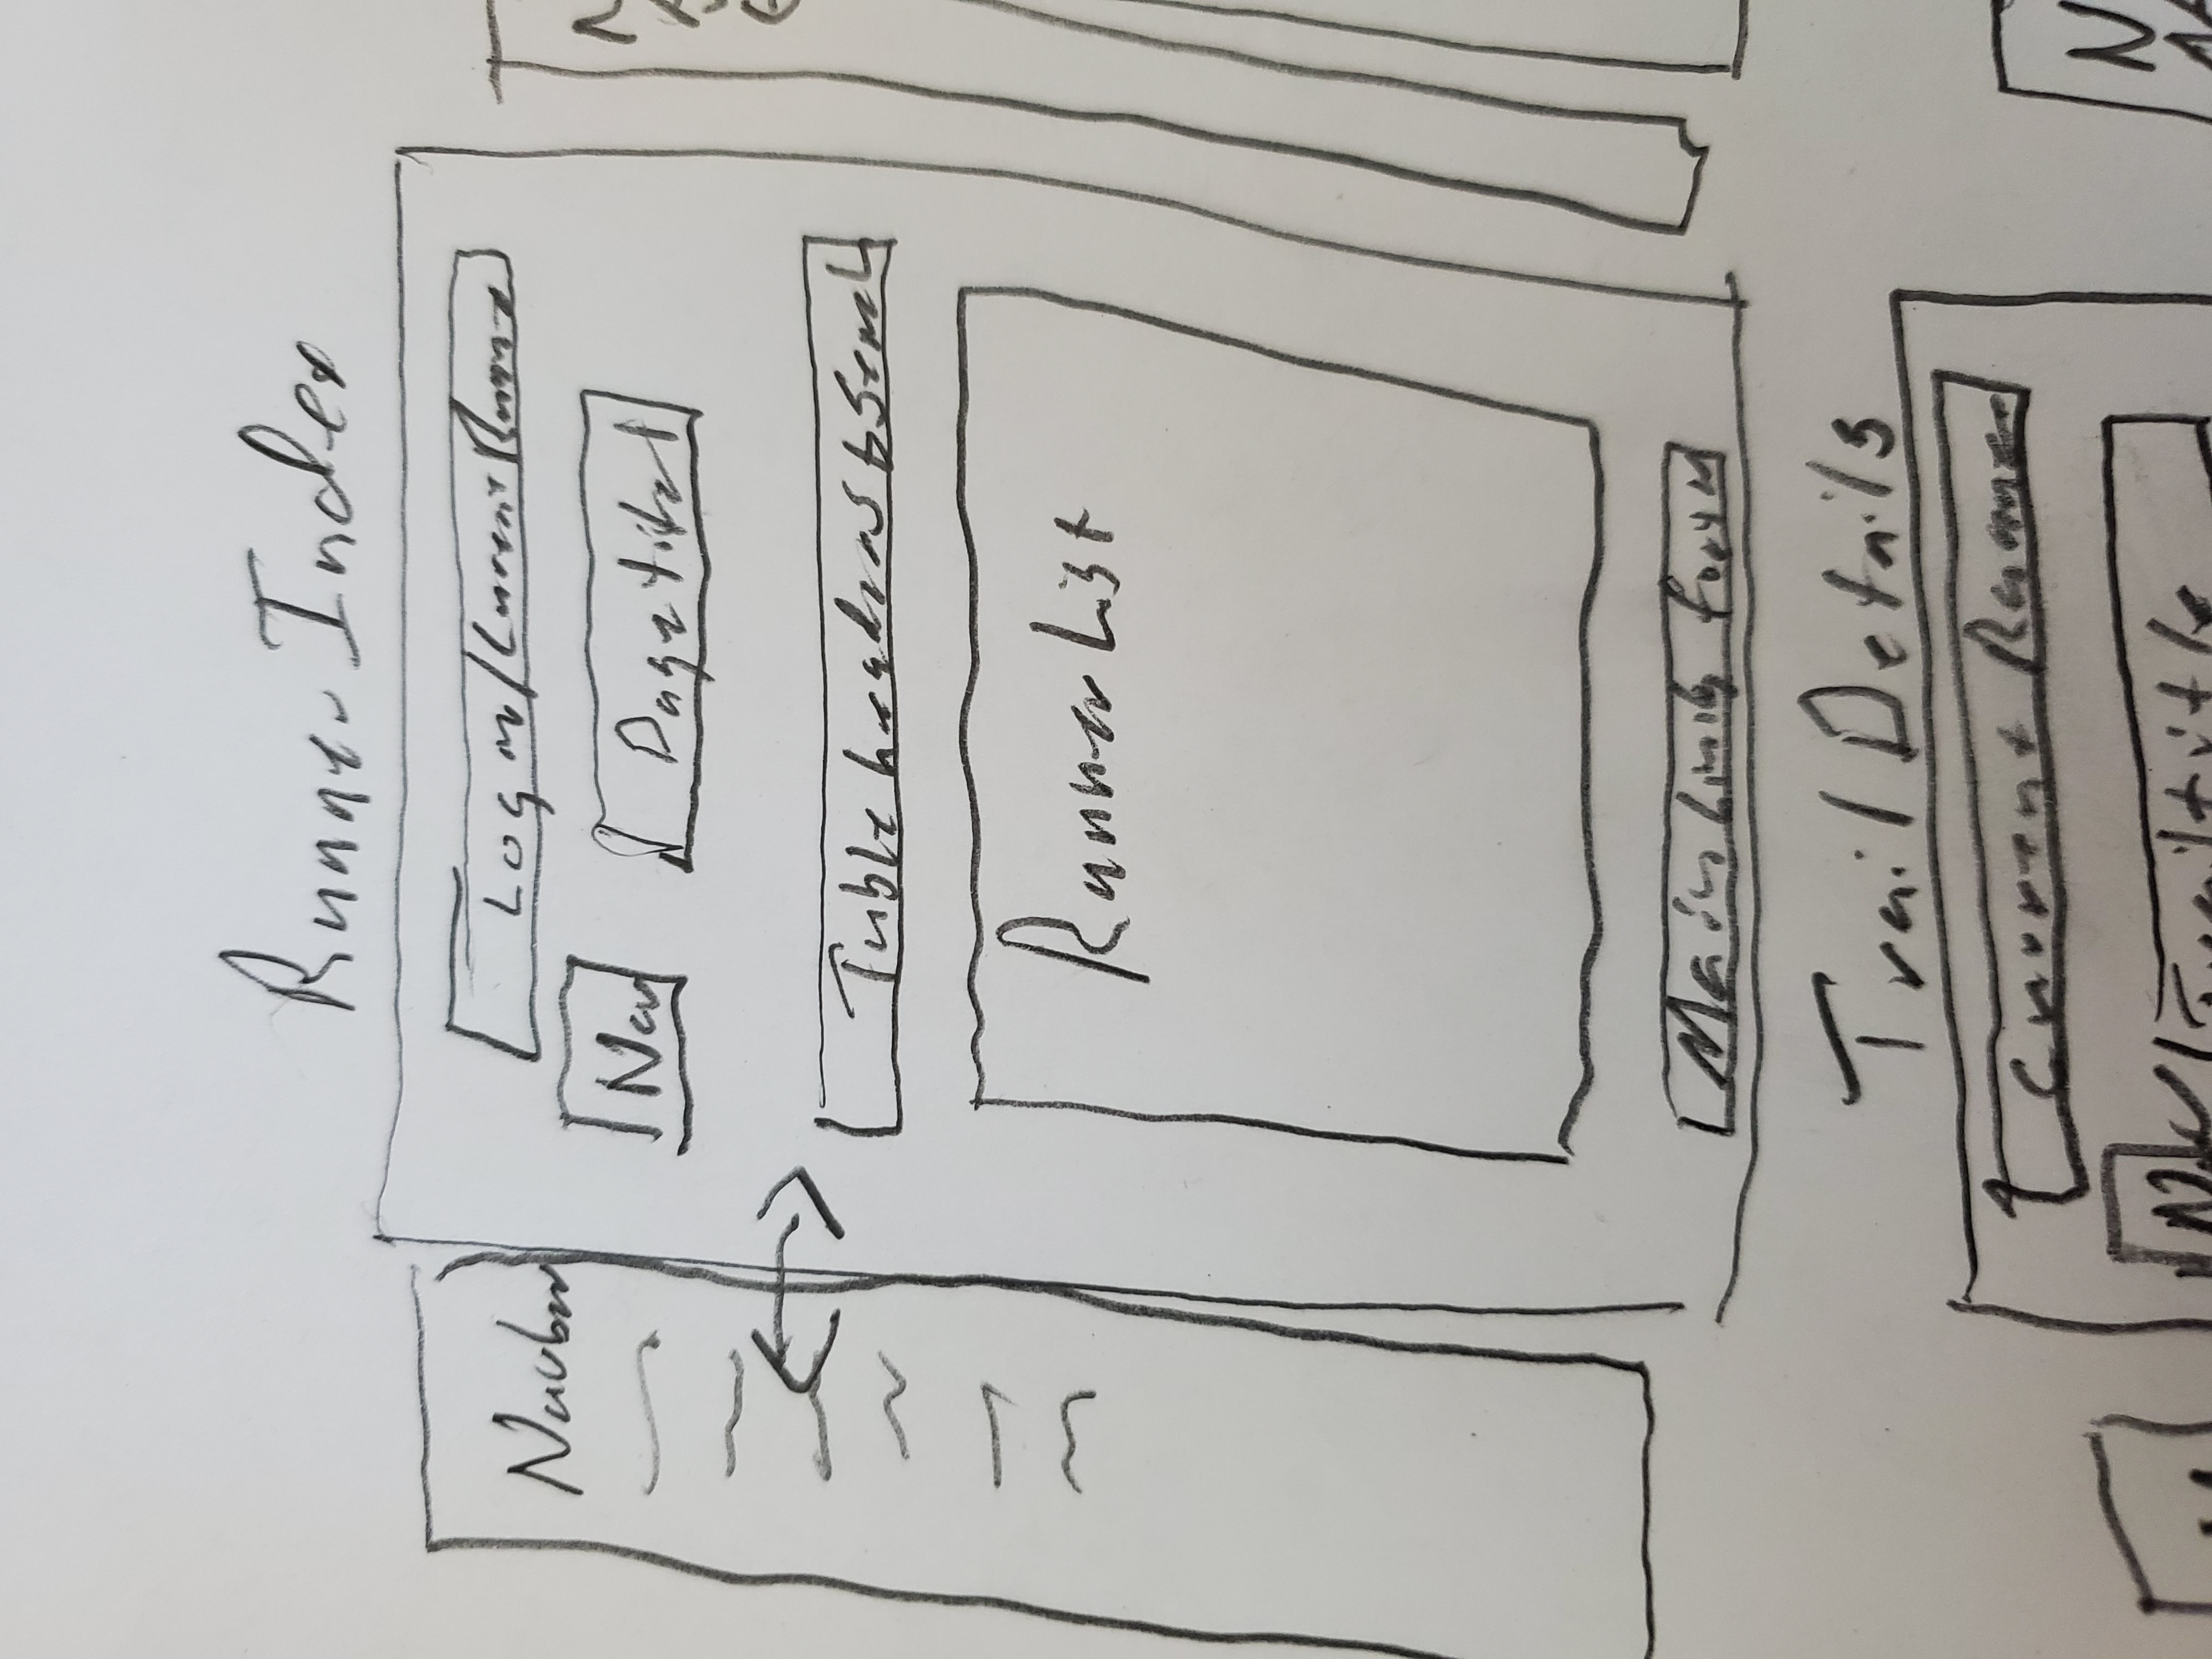 Runner Index
Navbar
Login/Current Runner
Nav
Page titel
Table headers to Search
Runner List
Main
Trail Details
Current Runner
Nav
Trail title
N